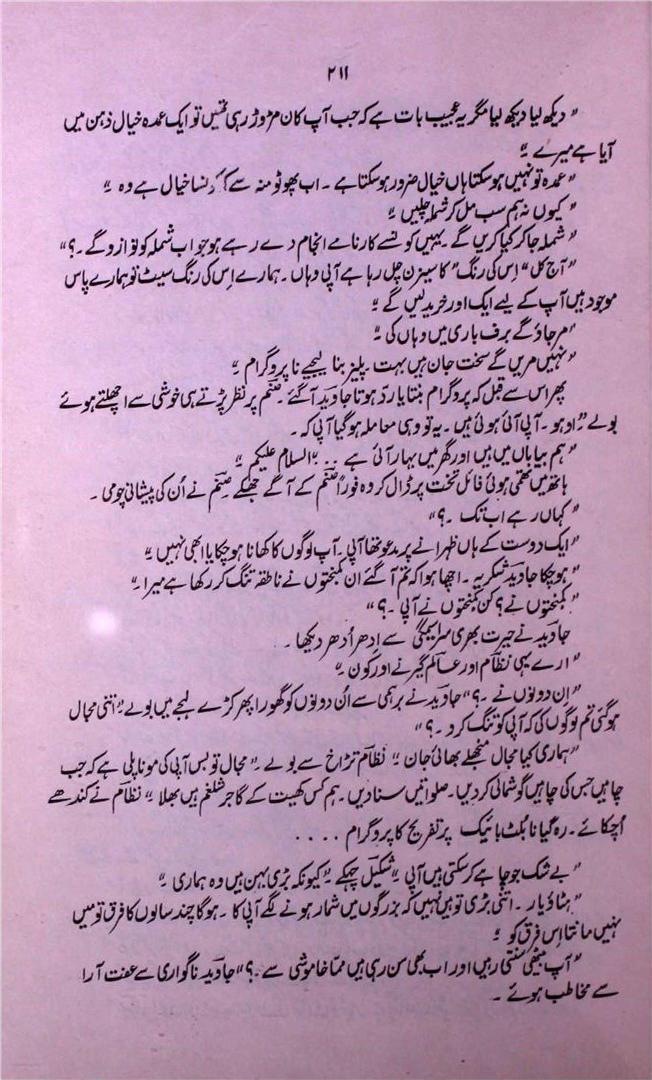 ۲۱۱
"دیکھ لیا دیکھ لیا مگر یہ عجیب بات ہے کہ جب آپ کان مڑوڑ رہی تھیں تو ایک عمدہ خیال ذہن میں
آیا ہے میرے۔"
"عمدہ تو نہیں ہو سکتا ہاں خیال ضرور ہو سکتا ہے۔ اب پھوٹو منہ سے کونسا خیال ہے وہ۔"
"کیوں نہ ہم سب مل کر شملہ چلیں۔"
"شملہ جا کر کیا کریں گے۔ یہیں کونسے کارنامے انجام دے رہے ہو جو اب شملہ کو نوازو گے۔؟"
"آج کل "اِس کی رنگ" کا سیزن چل رہا ہے آپی وہاں۔ ہمارے اِس کی رنگ سیٹ تو ہمارے پاس
موجود ہیں آپ کے لیے ایک اور خرید لیں گے۔"
"مر جاؤ گے برف باری میں وہاں کی۔"
"نہیں مریں گے سخت جان ہیں بہت۔ پلیز بنا لیجیے نا پروگرام۔"
پھر اس سے قبل کہ پروگرام بنتا یا ردّ ہوتا جاوید آ گئے۔ صنم پر نظر پڑتے ہی خوشی سے اچھلتے ہوئے
بولے "اوہو۔ آپی آئی ہوئی ہیں۔ یہ تو وہی معاملہ ہو گیا آپی کہ۔
"ہم بیاباں میں ہیں اور گھر میں بہار آئی ہے ..." السلام علیکم۔"
ہاتھ میں تھمی ہوئی فائل تخت پر ڈال کر وہ فوراً صنم کے آگے جھکے صنم نے اُن کی پیشانی چومی۔
"کہاں رہے اب تک۔؟"
"ایک دوست کے ہاں ظہرانے پر مدعو تھا آپی۔ آپ لوگوں کا کھانا ہو چکا یا ابھی نہیں۔"
"ہو چکا جاوید شکریہ۔ اچھا ہوا کہ تم آ گئے ان کمبختوں نے ناطقہ تنگ کر رکھا ہے میرا۔"
"کمبختوں نے؟ کن کمبختوں نے آپی۔؟"
جاوید نے حیرت بھری سراسیمگی سے اِدھر اُدھر دیکھا۔
"ارے یہی نظام اور عالم گیر نے اور کون۔"
"اِن دونوں نے۔؟" جاوید نے برہمی سے اُن دونوں کو گھورا پھر کڑے لہجے میں بولے "اتنی مجال
ہو گئی تم لوگوں کی کہ آپی کو تنگ کرو۔؟"
"ہماری کیا مجال منجھلے بھائی جان۔" نظام تڑاخ سے بولے۔ "مجال تو بس آپی کی مونا پلی ہے کہ جب
چاہیں جس کی چاہیں گوشمالی کر دیں۔ صلواتیں سنا دیں۔ ہم کس کھیت کے گاجر شلغم ہیں بھلا۔" نظام نے کندھے
اُچکائے۔ رہ گیا نا بُلٹ بائیک پر تفریح کا پروگرام ....
"بے شک جو چاہے کر سکتی ہیں آپی۔" شکیل چہکے۔ "کیونکہ بڑی بہن ہیں وہ ہماری۔"
"ہٹاؤ یار۔ اتنی بڑی تو ہیں نہیں کہ بزرگوں میں شمار ہونے لگے آپی کا۔ ہو گا چند سالوں کا فرق تو میں
نہیں مانتا اِس فرق کو۔"
"آپ بیٹھی سنتی رہیں اور اب بھی سن رہی ہیں ممّا خاموشی سے۔؟" جاوید ناگواری سے عفت آرا
سے مخاطب ہوئے۔